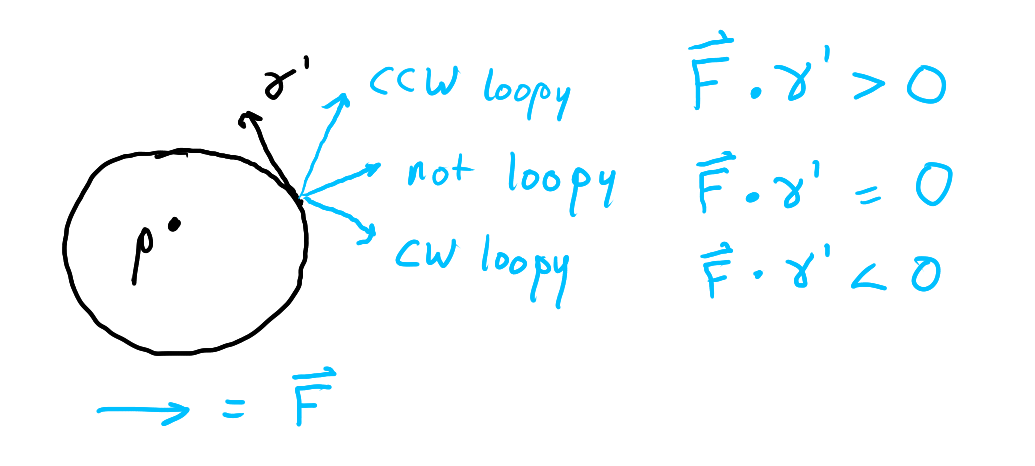 γ'
CCW loopy F⃗ · γ' > 0
not loopy F⃗ · γ' = 0
p
CW loopy F⃗ · γ' < 0
= F⃗